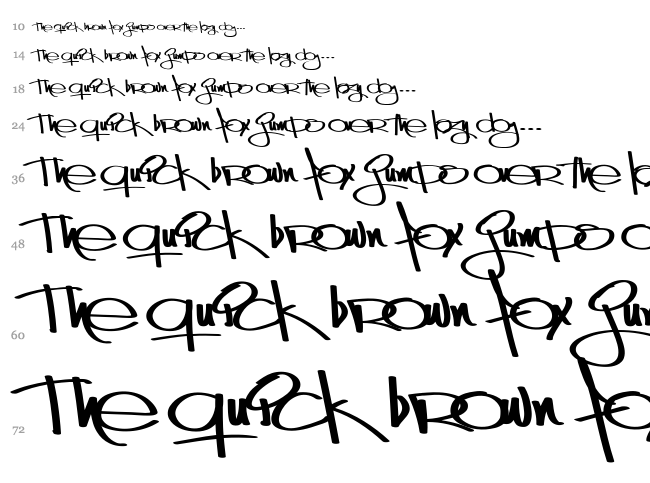 10 The quick brown fox jumps over the lazy dog...
14 The quick brown fox jumps over the lazy dog...
18 The quick brown fox jumps over the lazy dog...
24 The quick brown fox jumps over the lazy dog...
36 The quick brown fox jumps over the l
48 The quick brown fox jumps o
60 The quick brown fox jum
72 The quick brown fo